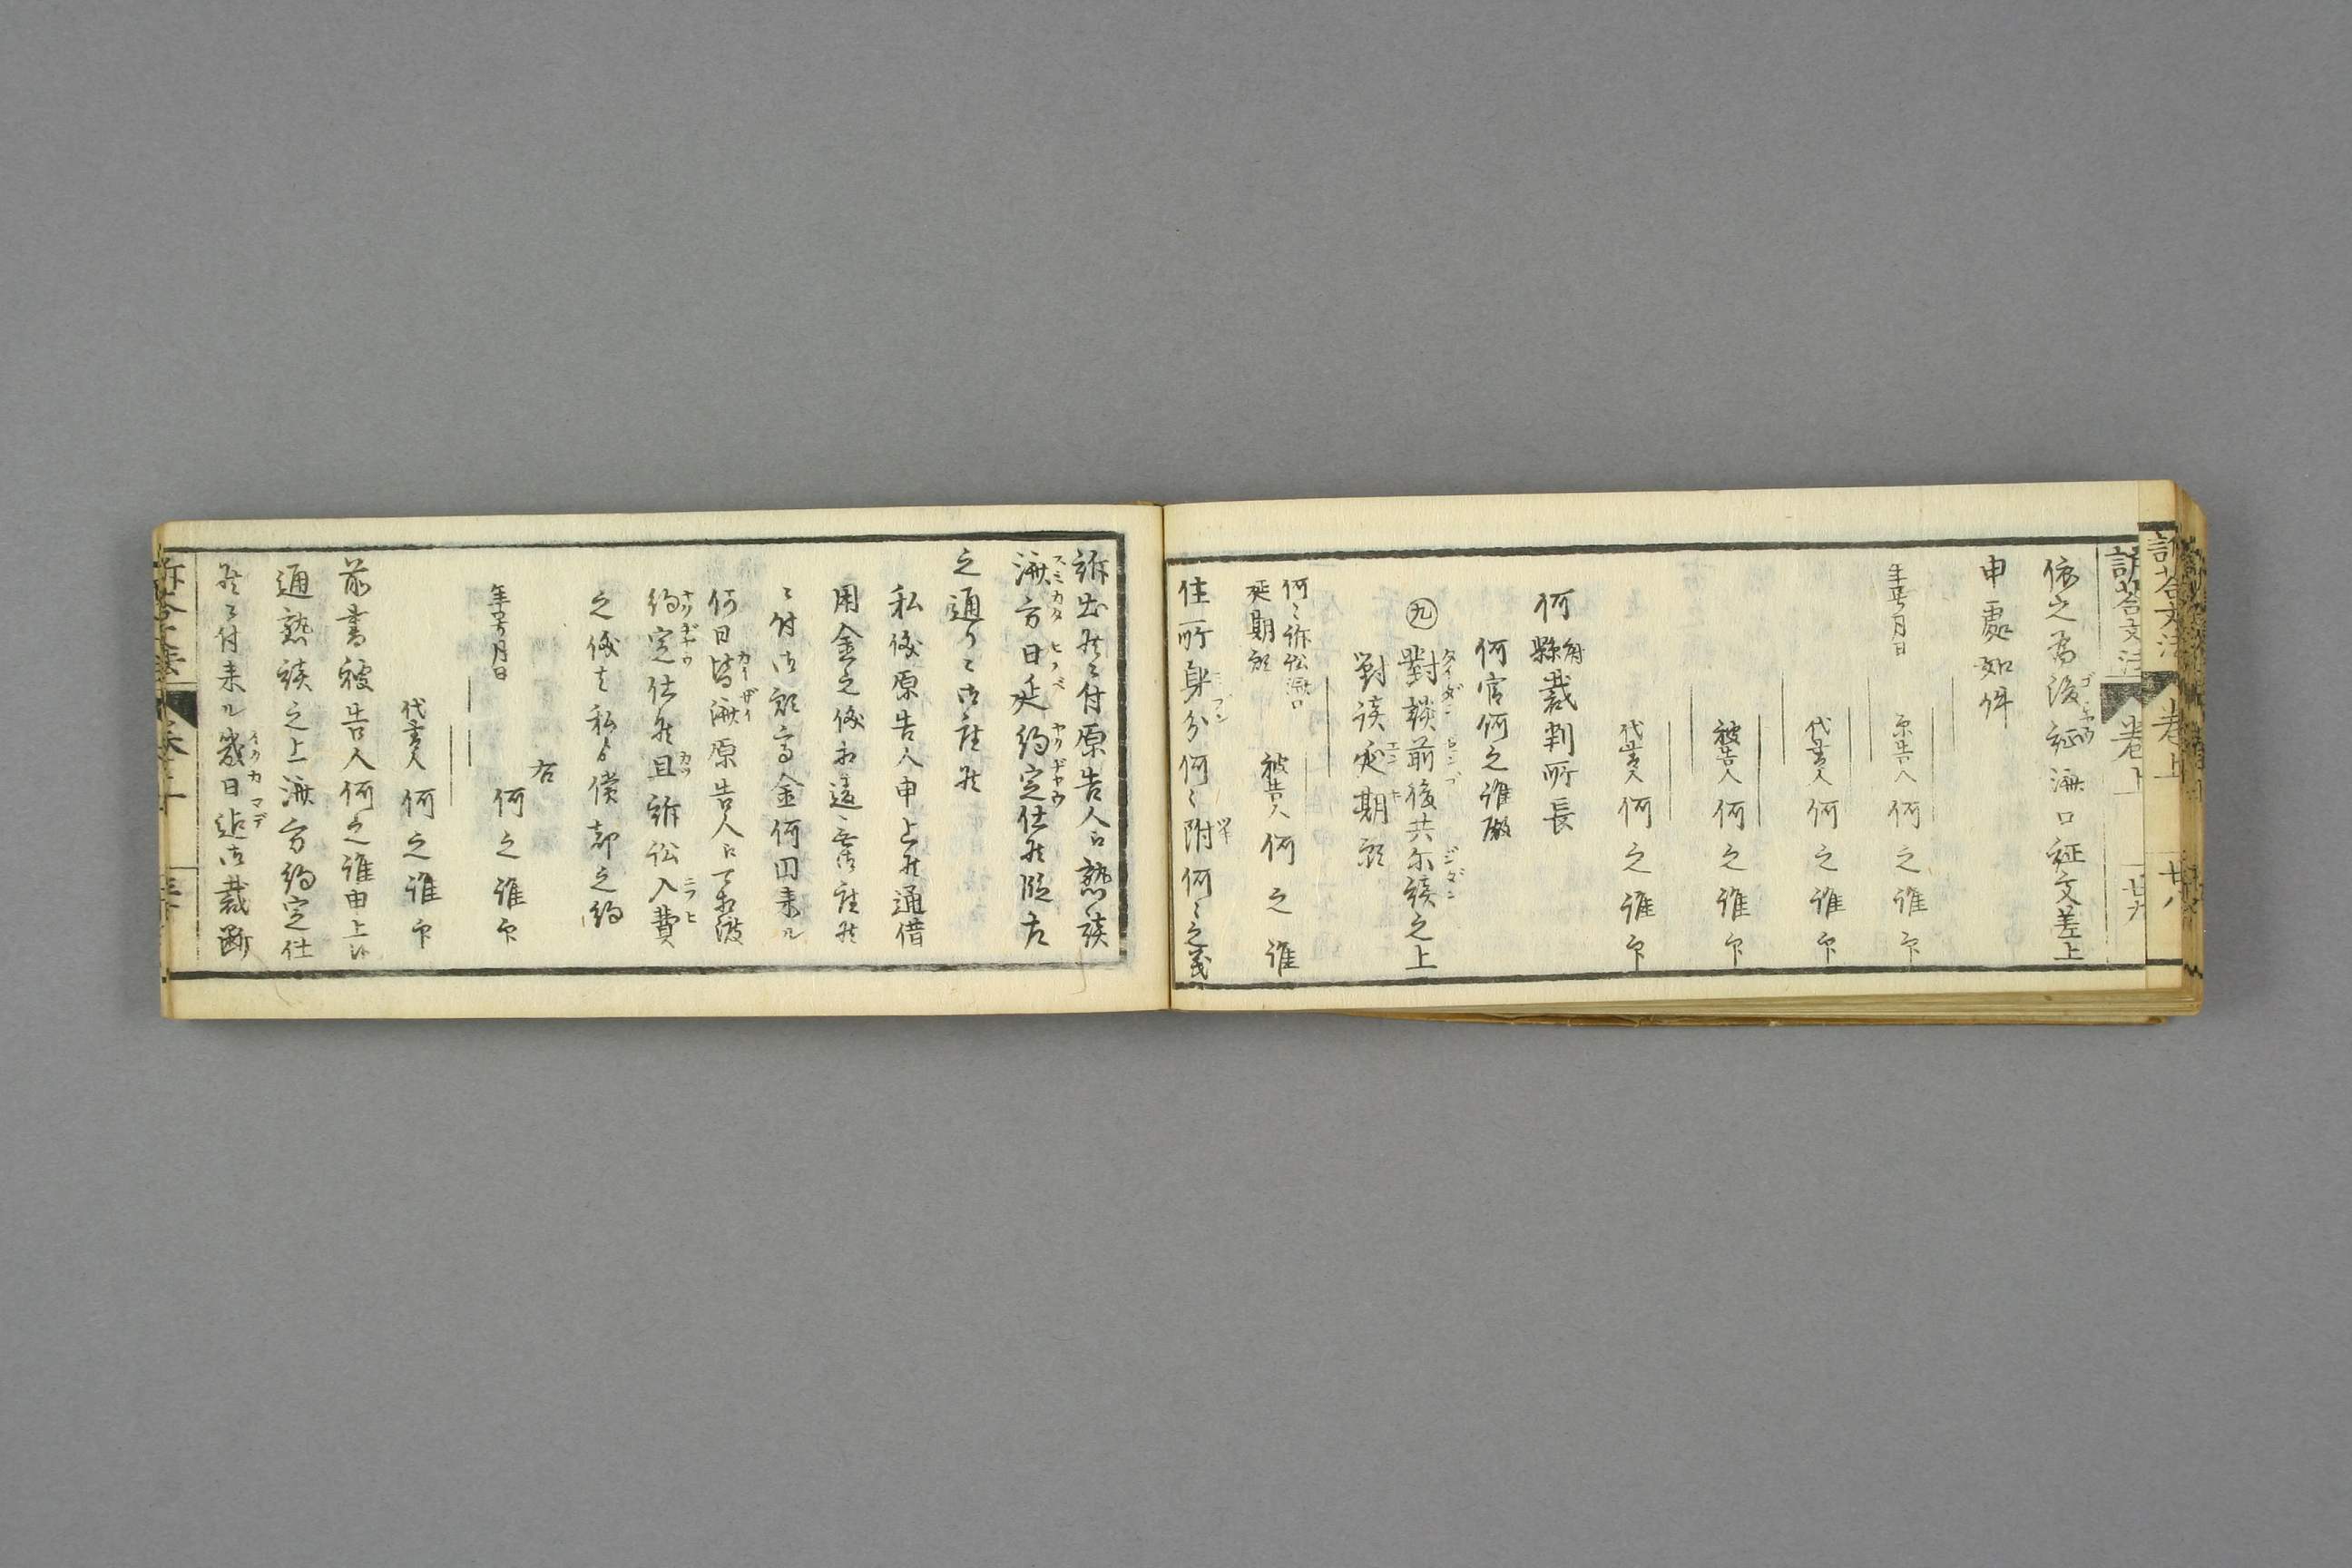 訴答文法 卷上 廿八
訴答文法 卷下 廿九
依之為後証済口証文差上
申處如件
年号月日
原告人 何之誰 印
代書人 何之誰 印
被告人 何之誰 印
代書人 何之誰 印
何府縣裁判所長
何官何之誰殿
九 對談前後共示談之上
對談延期願
何〻訴訟済口
延期願
被告人 何之誰
住所身分何〻附何〻之義
訴出候ニ付原告人ニ熟談
済方日延約定仕候段左
之通リニ御座候
私儀原告人申上候通借
用金之儀相違無御座候
ニ付御願高金何円来ル
何日皆済原告人ニ可相渡
約定仕候且訴訟入費
之儀者私ゟ償却之約
右
年号月日
何之誰 印
代書人 何之誰 印
前書被告人何之誰申上候
通熟談之上済方約定仕
候ニ付来ル幾日迠御裁断